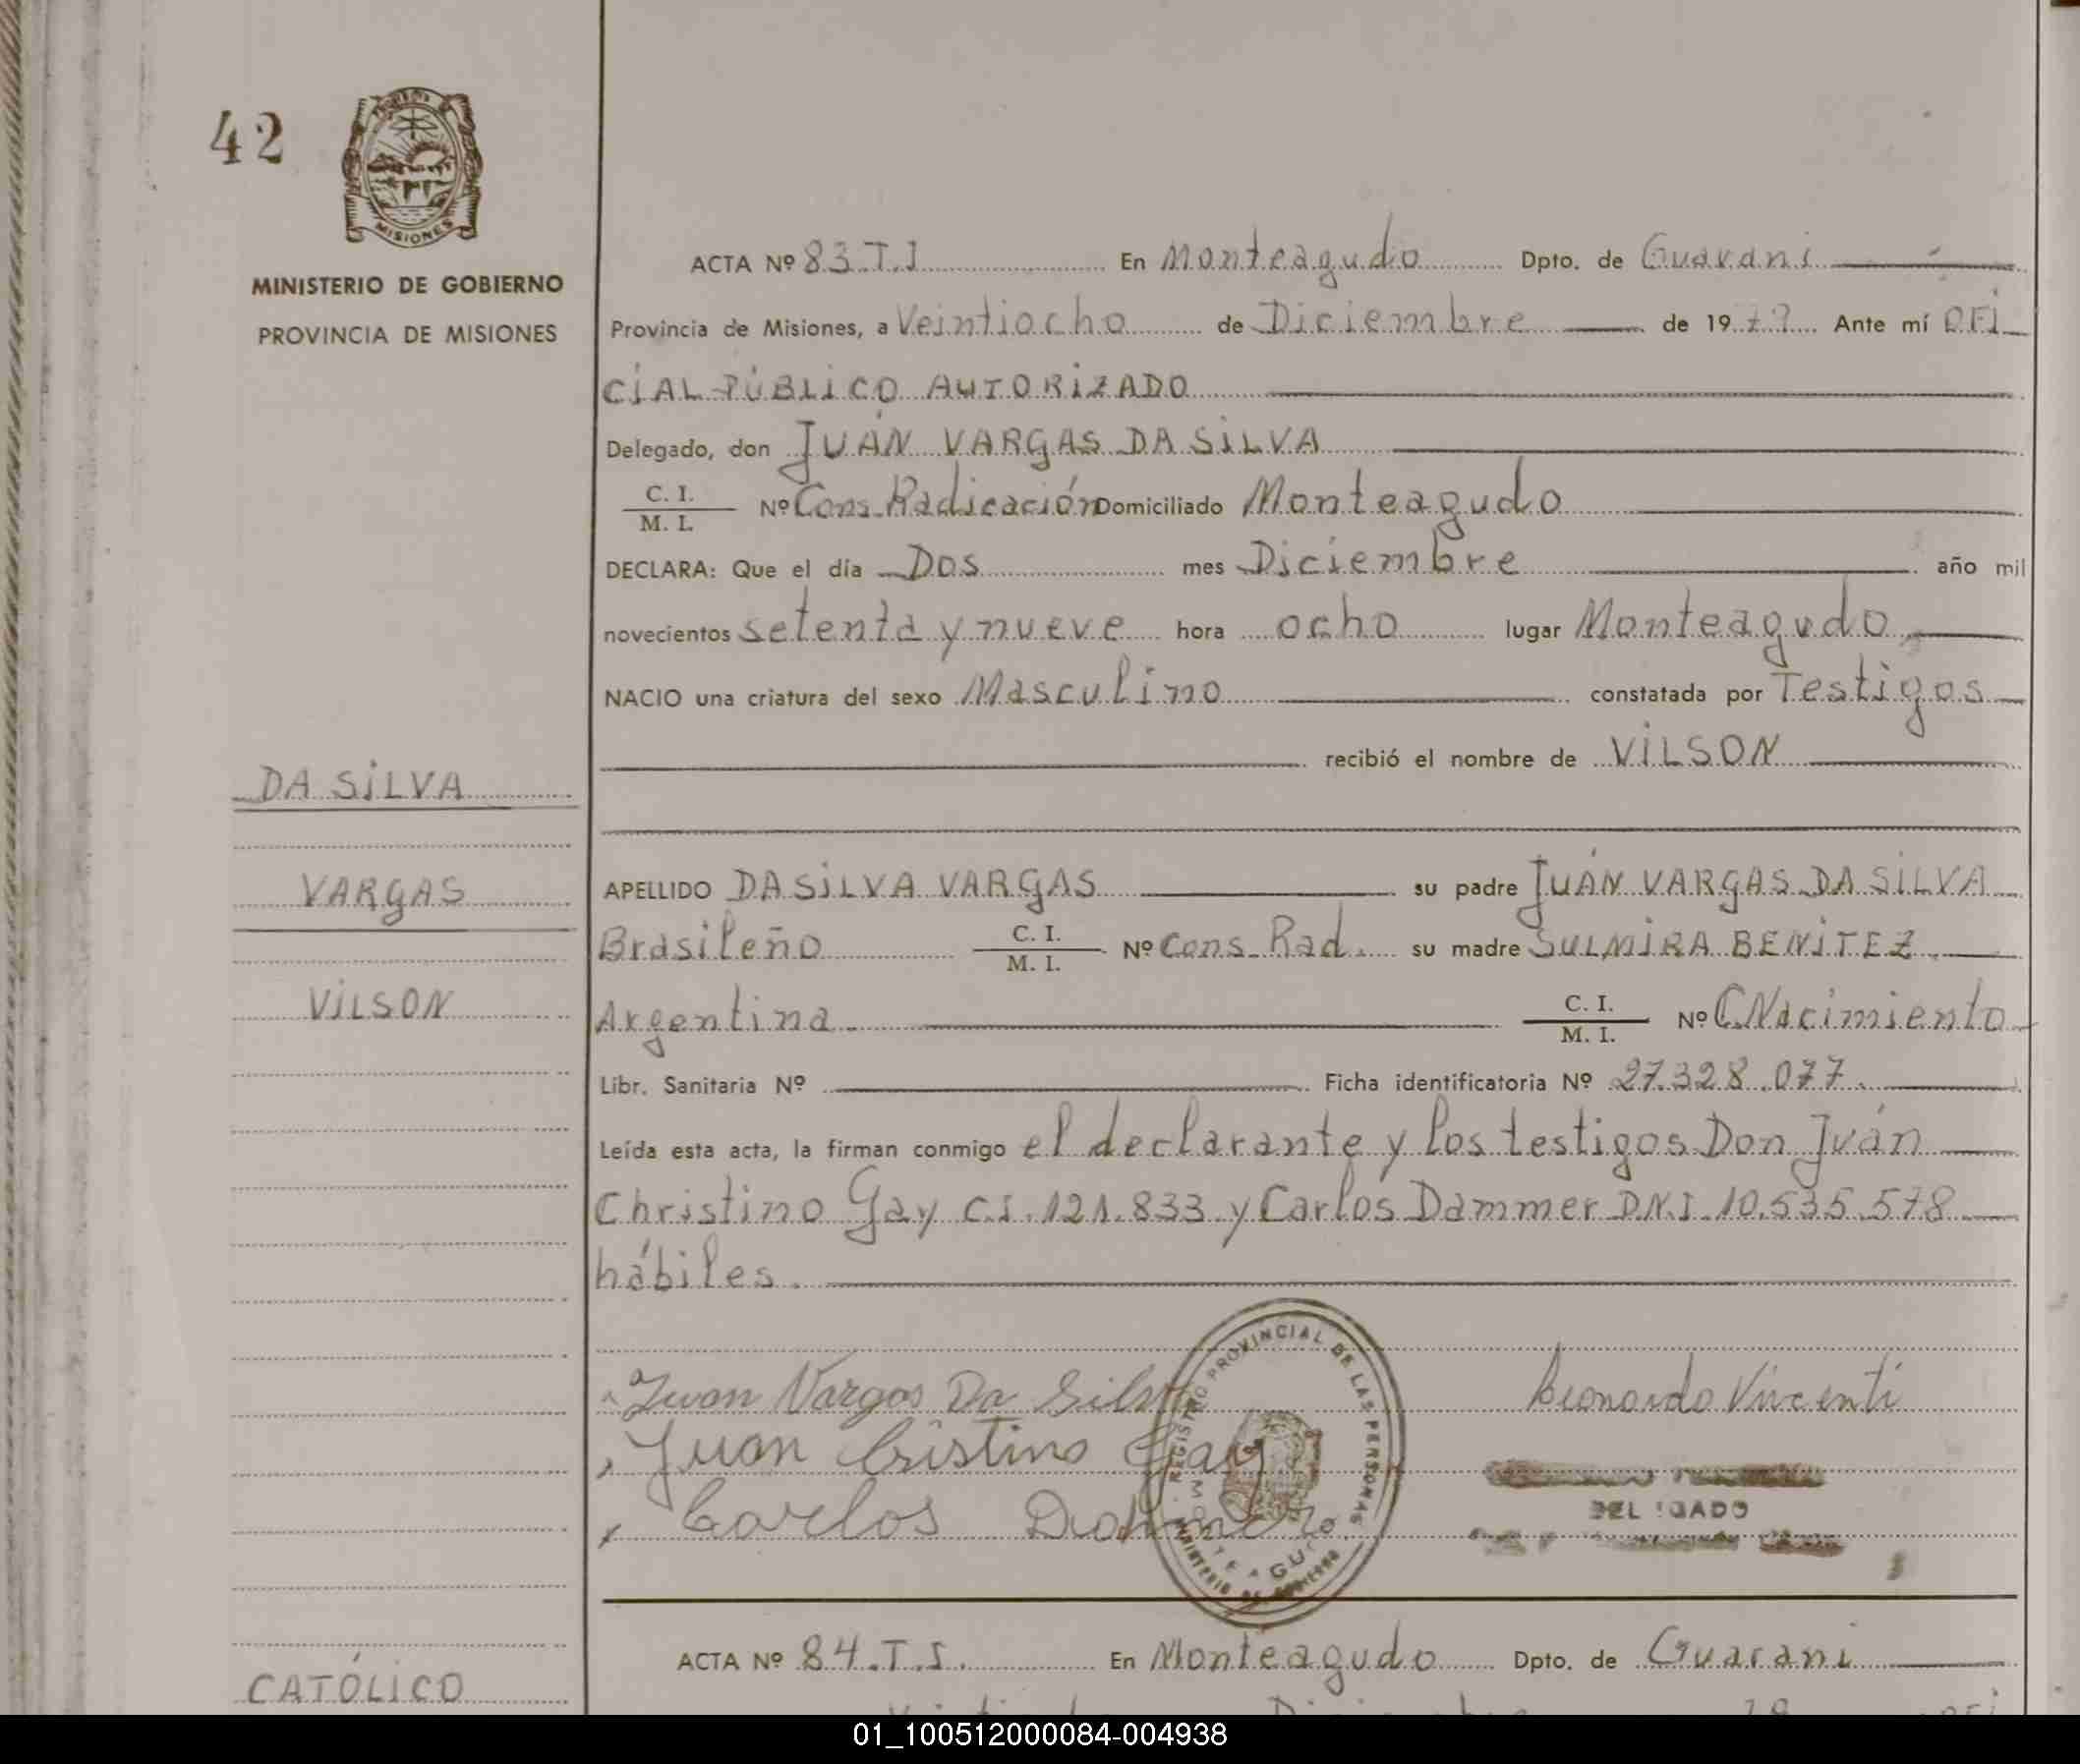 42
MISIONES
MINISTERIO DE GOBIERNO
PROVINCIA DE MISIONES
DA SILVA
VARGAS
VILSON
ACTA Nº 83.T.I En Monteagudo Dpto. de Guaraní
Provincia de Misiones, a Veintiocho de Diciembre de 1979 Ante mí OFI
CIAL PÚBLICO AUTORIZADO
Delegado, don JUAN VARGAS DA SILVA
C. I. / M. I. Nº Cons. Radicación Domiciliado Monteagudo
DECLARA: Que el día Dos mes Diciembre año mil
novecientos setenta y nueve hora ocho lugar Monteagudo
NACIO una criatura del sexo Masculino constatada por Testigos
recibió el nombre de VILSON
APELLIDO DA SILVA VARGAS su padre JUAN VARGAS DA SILVA
Brasileño C. I. / M. I. Nº Cons. Rad. su madre SULMIRA BENITEZ
Argentina C. I. / M. I. Nº C.Nacimiento
Libr. Sanitaria Nº Ficha identificatoria Nº 27.328.077.
Leída esta acta, la firman conmigo el declarante y los testigos Don Juan
Christino Gay C.I. 121.833 y Carlos Dammer D.N.I. 10.535.578
hábiles.
Juan Vargas Da Silva
Juan Cristino Gay
Carlos
REGISTRO PROVINCIAL DE LAS PERSONAS
MINISTERIO DE GOBIERNO
MONTEAGUDO
Leonardo Vicenti
DELEGADO
ACTA Nº 84.T.I. En Monteagudo Dpto. de Guaraní
CATÓLICO
01_100512000084-004938